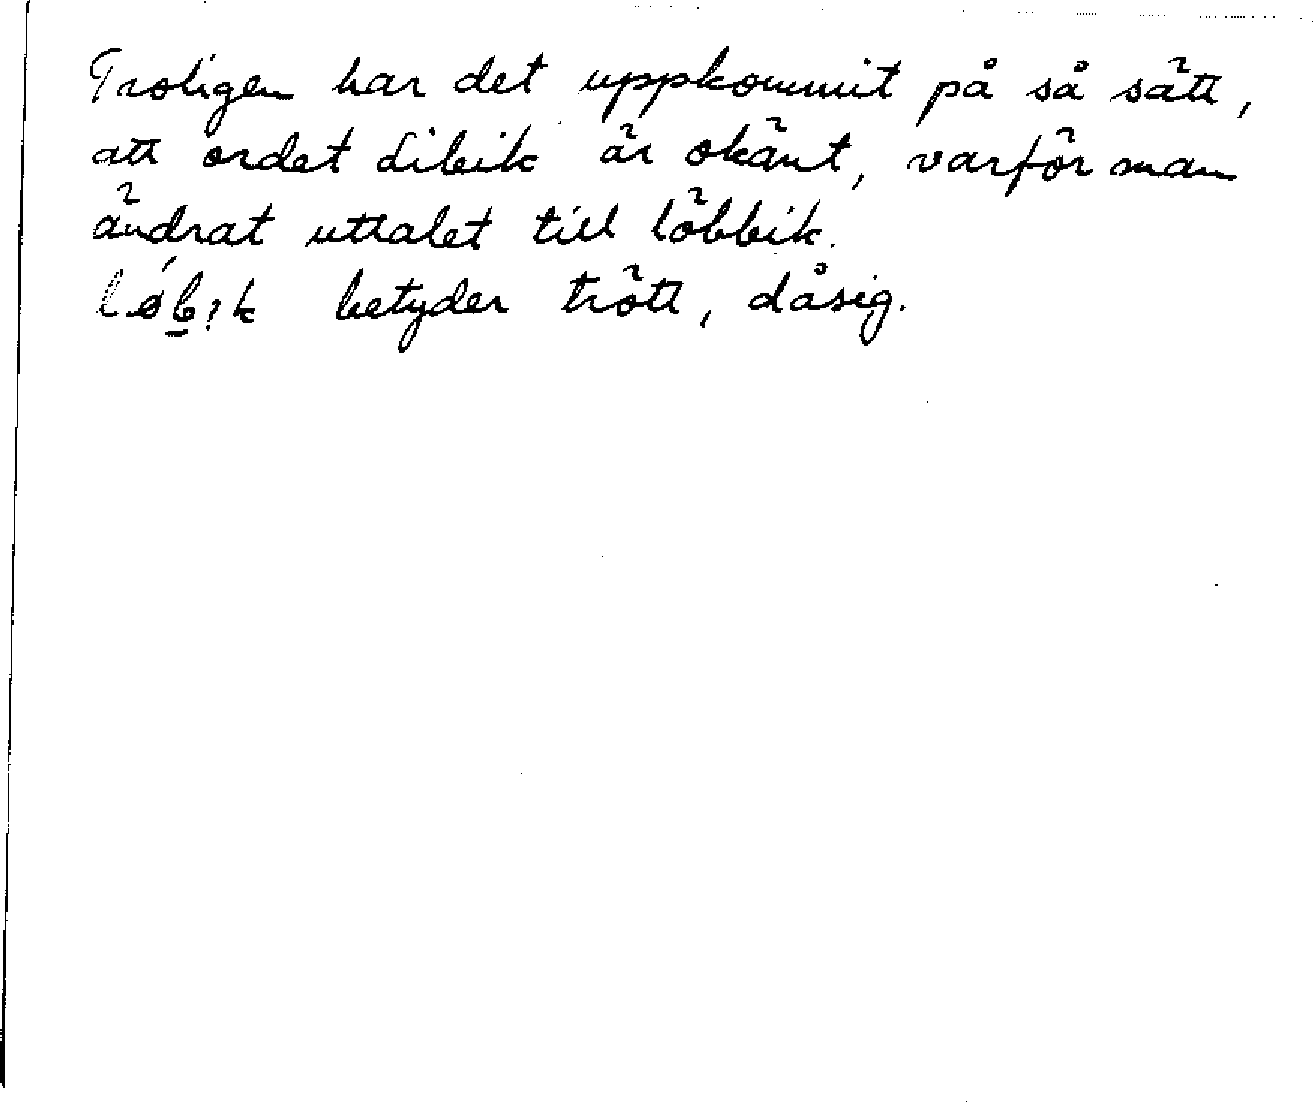 Troligen har det uppkommit på så sätt,
att ordet Libik är okänt, varför man
ändrat uttalet till löbbik.
betyder trött, dåsig.